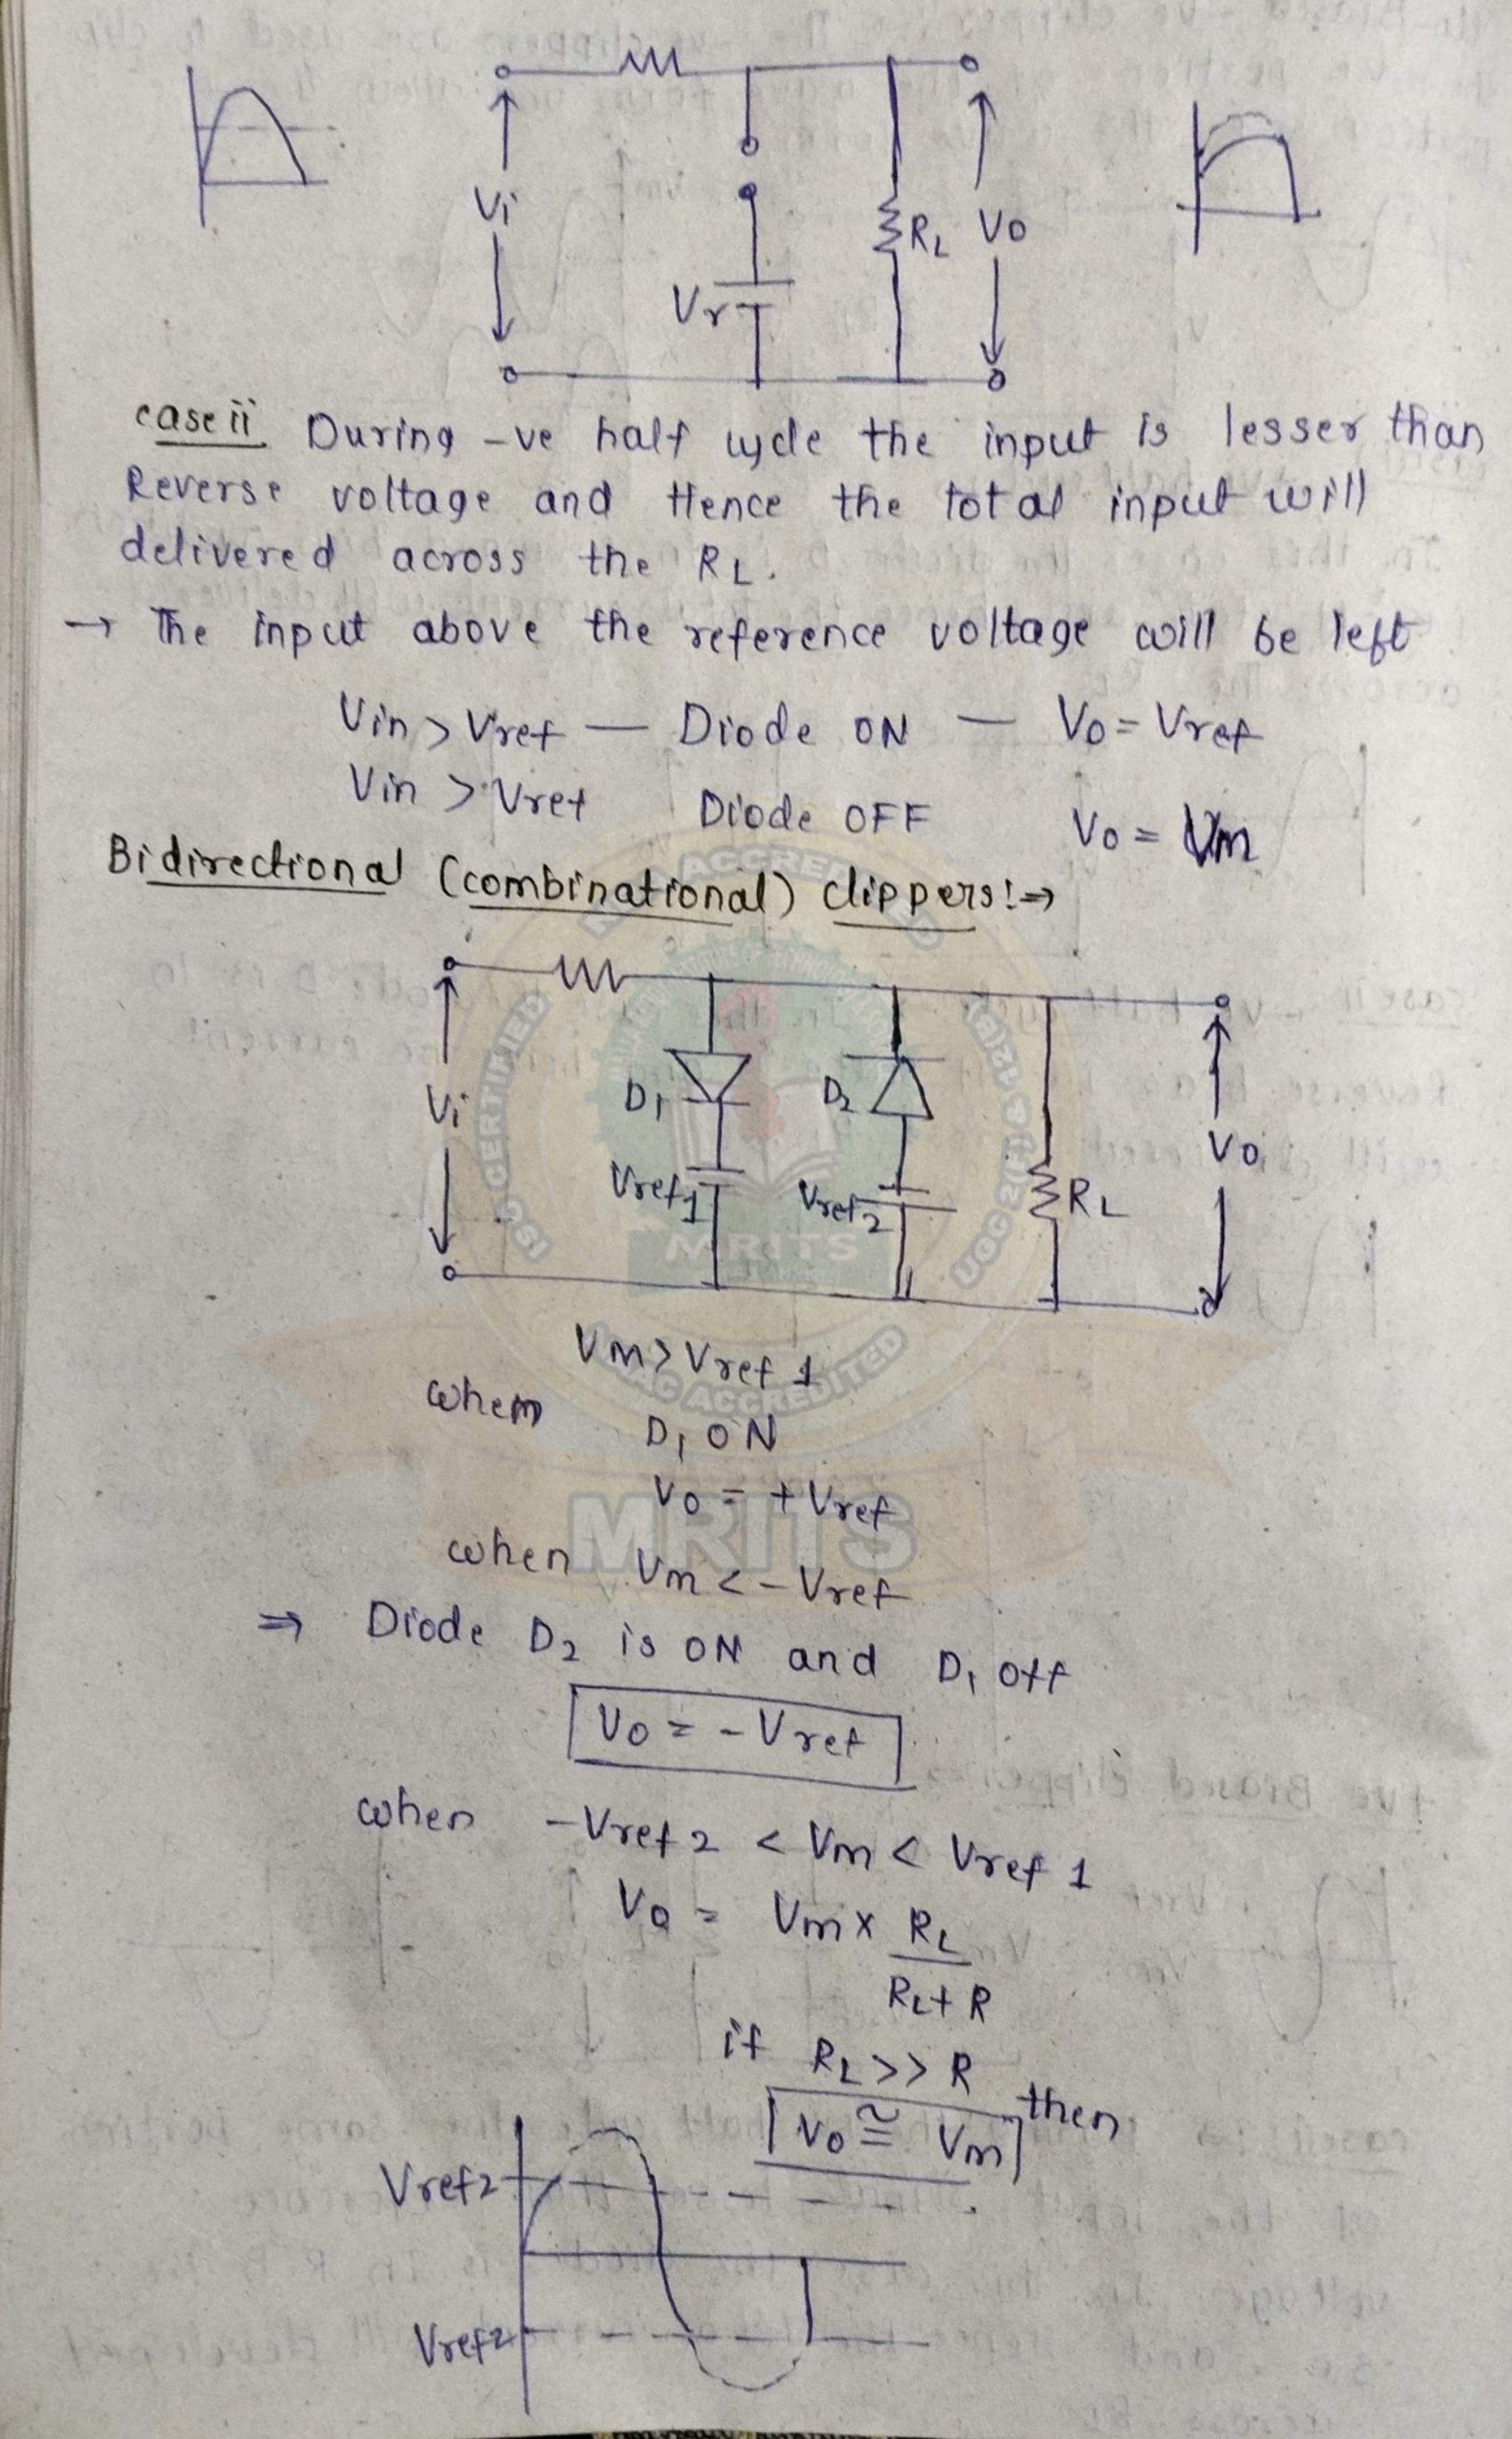 Vi
Vr
RL
Vo
case ii During -ve half cycle the input is lesser than
Reverse voltage and Hence the total input will
delivered across the RL.
→ The input above the reference voltage will be left
Vin > Vref — Diode ON — Vo = Vref
Vin > Vref Diode OFF Vo = Vm
Bidirectional (combinational) clippers:⇒
Vi
D1
D2
Vref1
Vref2
RL
Vo
Vm > Vref 1
when
D1 ON
Vo = +Vref
when Vm < -Vref
⇒ Diode D2 is ON and D1 off
Vo = -Vref
when -Vref 2 < Vm < Vref 1
Vo = Vm x RL
RL + R
if RL >> R
then
Vo ≅ Vm
Vref2
Vref2
ISO CERTIFIED
UGC 2(f) & 12(B)
NAAC ACCREDITED
MRITS
MRITS